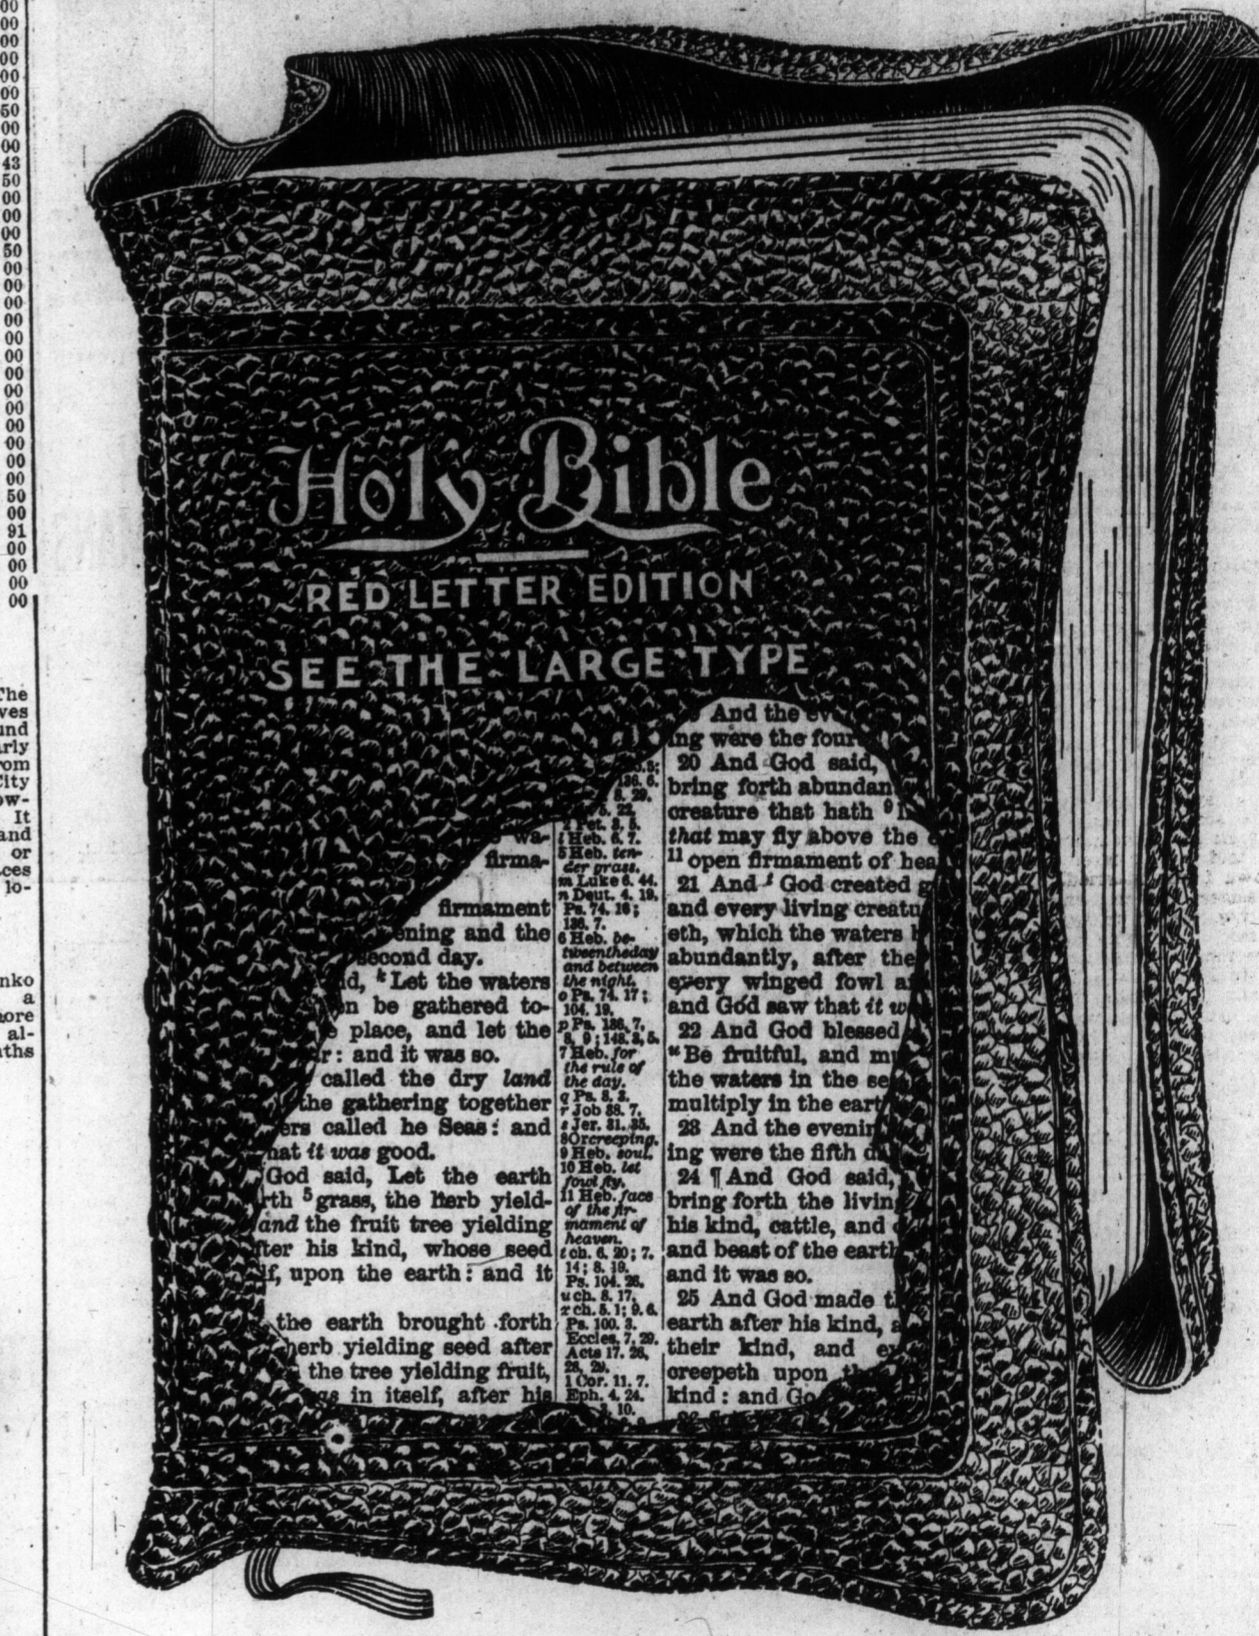 00
00
00
00
00
00
50
00
00
43
50
00
00
00
50
00
00
00
00
00
00
00
00
00
00
00
00
00
50
00
91
00
00
00
00
The
ves
und
arly
rom
City
ow-
It
and
or
ces
lo-
nko
a
more
al-
nths
Holy Bible
RED LETTER EDITION
SEE THE LARGE TYPE
wa-
firma-
firmament
ening and the
second day.
id, k Let the waters
en be gathered to-
place, and let the
r: and it was so.
called the dry land
the gathering together
ers called he Seas: and
hat it was good.
God said, Let the earth
rth 5 grass, the herb yield-
and the fruit tree yielding
fter his kind, whose seed
lf, upon the earth: and it
the earth brought forth
herb yielding seed after
the tree yielding fruit,
in itself, after his
136. 6.
Pet. 3. 5.
l Heb. 6. 7.
5 Heb. ten-
der grass.
m Luke 6. 44.
n Deut. 4. 19.
Ps. 74. 16;
136. 7.
6 Heb. be-
tween the day
and between
the night.
o Ps. 74. 17;
104. 19.
p Ps. 136. 7,
8, 9; 148. 3, 5.
7 Heb. for
the rule of
the day.
q Ps. 8. 3.
r Job 38. 7.
s Jer. 31. 35.
8 Or creeping.
9 Heb. soul.
10 Heb. let
fowl fly.
11 Heb. face
of the fir-
mament of
heaven.
t ch. 6. 20; 7.
14; 8. 19.
Ps. 104. 26.
u ch. 8. 17.
x ch. 5. 1; 9. 6.
Ps. 100. 3.
Eccles. 7. 29.
Acts 17. 26,
28, 29.
1 Cor. 11. 7.
Eph. 4. 24.
10.
And the eve
ing were the four
20 And God said,
bring forth abundan
creature that hath 9
that may fly above the
11 open firmament of hea
21 And t God created g
and every living creatu
eth, which the waters
abundantly, after the
every winged fowl a
and God saw that it w
22 And God blessed
u Be fruitful, and mu
the waters in the se
multiply in the eart
23 And the evenin
ing were the fifth d
24 ¶ And God said,
bring forth the livin
his kind, cattle, and
and beast of the earth
and it was so.
25 And God made t
earth after his kind, a
their kind, and e
creepeth upon th
kind: and Go